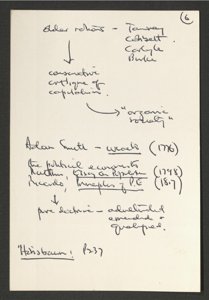 6
older notions – Tawney
Cobbett
Carlyle
Burke
conservative
critique of
capitalism
"organic
society"
Adam Smith – wealth (1776)
the political economists
Malthus, Essay on Population (1798)
Ricardo, Principles of P.E (1817)
pure doctrine –
amended &
qualified.
Hobsbawm: p237